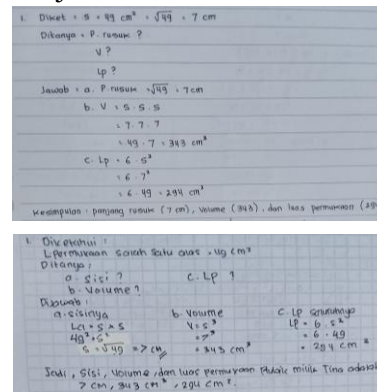 1. Diket = s = 49 cm² = √49 = 7 cm
Ditanya = P. rusuk ?
V ?
Lp ?
Jawab = a. P. rusuk = √49 = 7cm
b. V = s . s . s
= 7 . 7 . 7
= 49 . 7 = 343 cm³
c. Lp = 6 . s²
= 6 . 7²
= 6 . 49 = 294 cm²
Kesimpulan = panjang rusuk (7 cm), volume (343), dan luas permukaan (29
1. Diketahui :
L permukaan salah satu alas = 49 cm²
Ditanya :
a. Sisi ? c. LP ?
b. Volume ?
Dijawab :
a. sisinya b. volume c. LP
La = s x s V = s³ LP = 6 . s²
49² = s² = 7³ = 6 . 49
s = √49 = 7 cm = 343 cm³ = 294 cm²
Jadi, sisi, volume, dan luas permukaan milik Tina adalah
7 cm, 343 cm³, 294 cm².